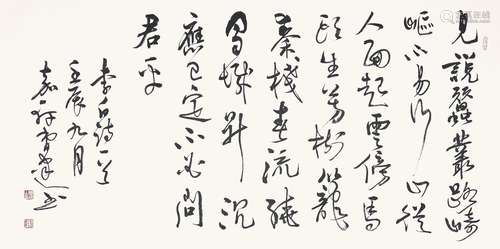 見說蠶叢路崎
嶇不易行山從
人面起雲傍馬
頭生芳樹籠
秦棧春流繞
蜀城升沉
應已定不必問
君平
李白詩一首
壬辰九月